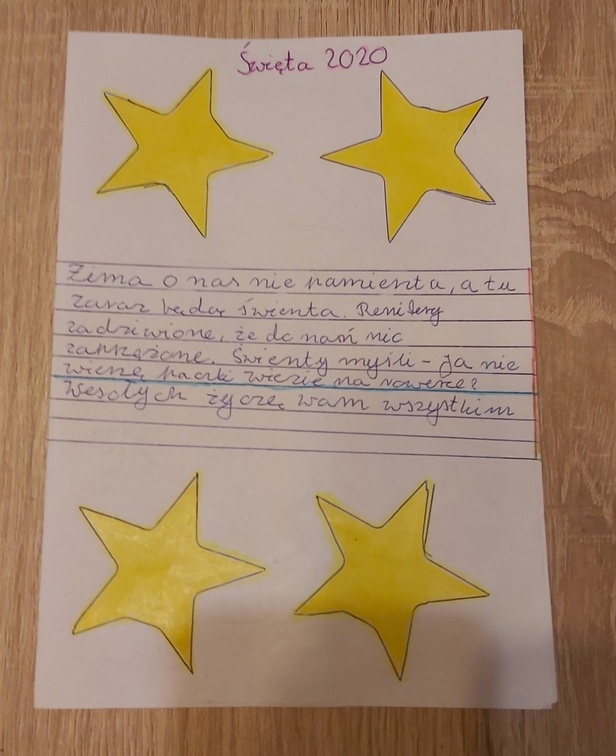 Święta 2020
Zima o nas nie pamienta, a tu
zaraz będą świenta. Renifery
zadziwione, że do nasń nic
zaprzężone. Świenty myśli - ja nie
wierzę paczki wiezie na rowerze?
Wesołych życzę wam wszystkim